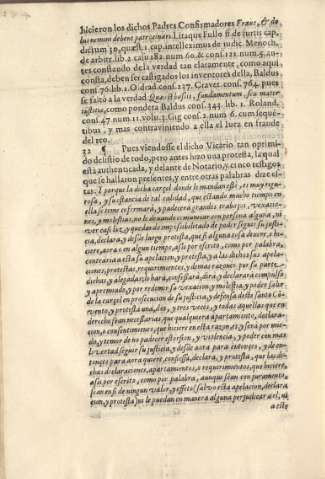 hicieron los dichos Padres Confirmadores Fraus, & do
lus nemini debent patrocinari. Ita que Fulio ff. de furtis cap.
dictum 39. quæst. 1. cap. intelleximus de iudic. Menoch.
de arbitr. lib. 2. casu 182. num 60. & conf. 121. num. 5. au-
tes constiendo de la verdad tan claramente, como aqui
consta, deben ser castigados los inventores della, Baldus
conf. 76. lib. 1. Odrad conf. 237. Cravet. conf. 764. pues
se faltò a la verdad
como pondera Baldus conf. 344. lib. 1. Roland.
conf. 47. num. 11. volu. 3. Gig conf. 2 num. 6. cum seque-
tibus, y mas contraviniendo a ella el luez en fraude
del reo.
32 ¶ Pues viendose el dicho Vicario tan oprimi-
do desistio de todo, pero antes hizo una protesta, la qual
está authenticada, y delante de Notario, y cinco testigos
que se hallaron presentes, y entre otras palabras dize es-
tas. Y porque la dicha carcel donde le mandan estar, es muy rigu-
rosa, y su estancia de tal calidad, que estando mucho tiempo en
ella se teme enfermarà, y padecera grandes trabajos,
nes, y molestias, no le dexando comunicar con persona alguna, ni
ver casi luz, y quedar impossibilitado de poder seguir su justi-
cia, declara, y desde luego protesta, que si alguna cosa dixere, o hi-
ziere, aora o en algun tiempo, assi por escrito, como por palabra,
contraria a esta su apelacion, y protesta, y a las dichas sus apela-
ciones, protestas, requirimentos, y demas razones por su parte
dichas, y alegadas, lo harà, confessarà, dirà, y declararà compulso
y apremiado, y por redemir su vexacion y molestia, y poder salir
de la carcel en prosecucion de su justicia, y defensa deste santo Cõ-
vento, y protesta una, dos, y tres vezes, y todas aquellas que en
derecho sean necessarias, que qualquiera apartamento, declara-
cion, o consentimiento, que hiziere en esta razon, es y serà por mie-
do, y temor de no padecer extorsion, y violencia, y poder con mas
libertad seguir su justicia, y desde aora para entonces, y de en-
tonces para aora quiere, confiessa, declara, y protesta, que las di-
chas declaraciones, apartamentos, o requirimentos, que hiziere,
assi por escrito, como por palabra, aunque sean con juramento
sean en si de ningun valor, y effeto (salvo esta apelacion, declara
cion, y protesta) ni le puedan en manera alguna perjudicar a el, ni
a este